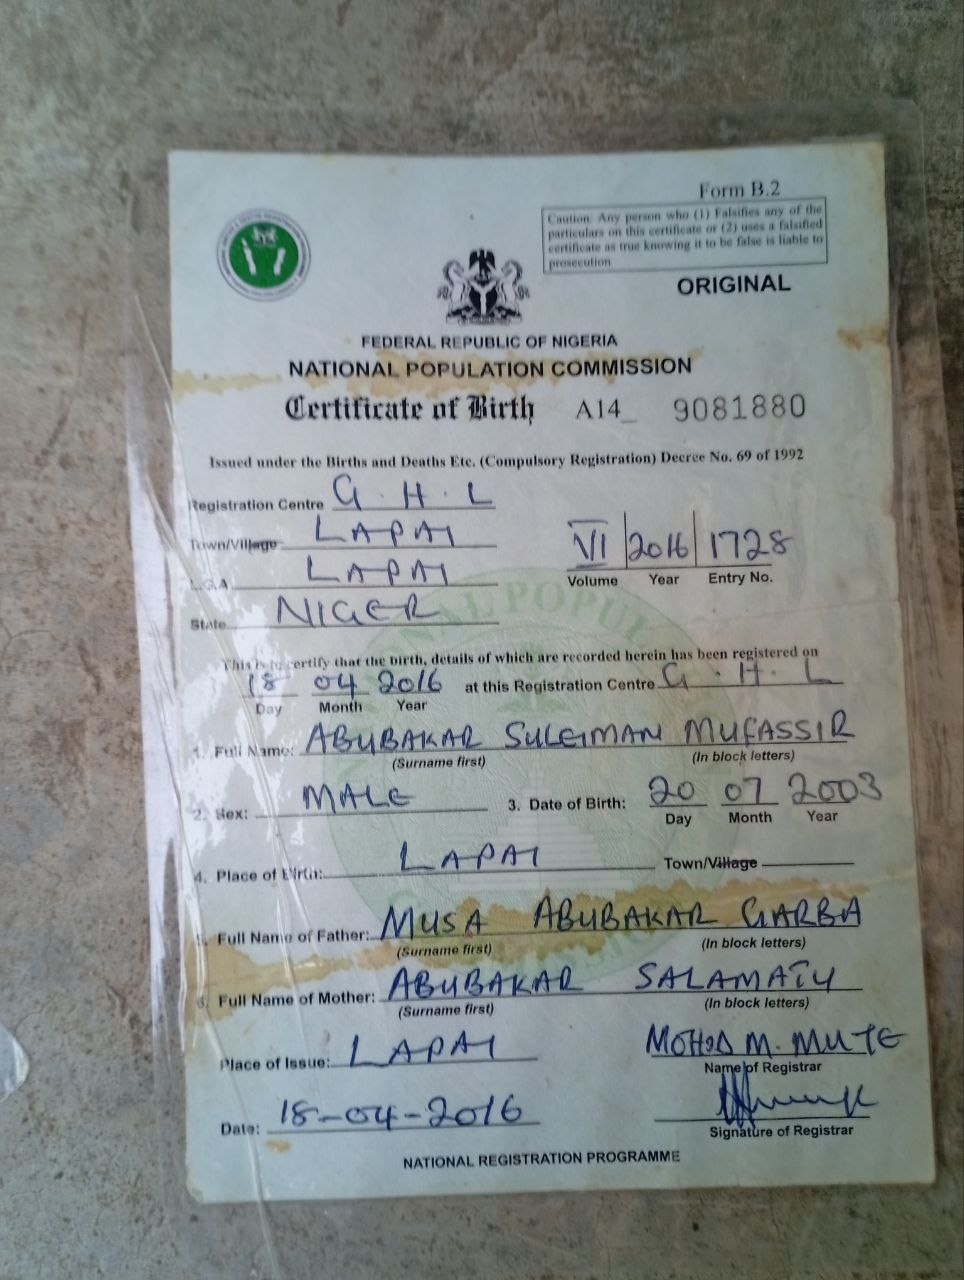 Form B.2
Caution: Any person who (1) Falsifies any of the
particulars on this certificate or (2) uses a falsified
certificate as true knowing it to be false is liable to
prosecution
ORIGINAL
FEDERAL REPUBLIC OF NIGERIA
NATIONAL POPULATION COMMISSION
Certificate of Birth A14_ 9081880
Issued under the Births and Deaths Etc. (Compulsory Registration) Decree No. 69 of 1992
Registration Centre G.H.L
Town/Village LAPAI
L.G.A LAPAI
VI 2016 1728
Volume Year Entry No.
State NIGER
This is to certify that the birth, details of which are recorded herein has been registered on
18 04 2016 at this Registration Centre G.H.L
Day Month Year
1. Full Name: ABUBAKAR SULEIMAN MUFASSIR
(Surname first) (In block letters)
2. Sex: MALE 3. Date of Birth: 20 07 2003
Day Month Year
4. Place of Birth: LAPAI Town/Village
5. Full Name of Father: MUSA ABUBAKAR GARBA
(Surname first) (In block letters)
6. Full Name of Mother: ABUBAKAR SALAMATU
(Surname first) (In block letters)
Place of Issue: LAPAI MOHOD M. MUTE
Name of Registrar
Date: 18-04-2016
Signature of Registrar
NATIONAL REGISTRATION PROGRAMME